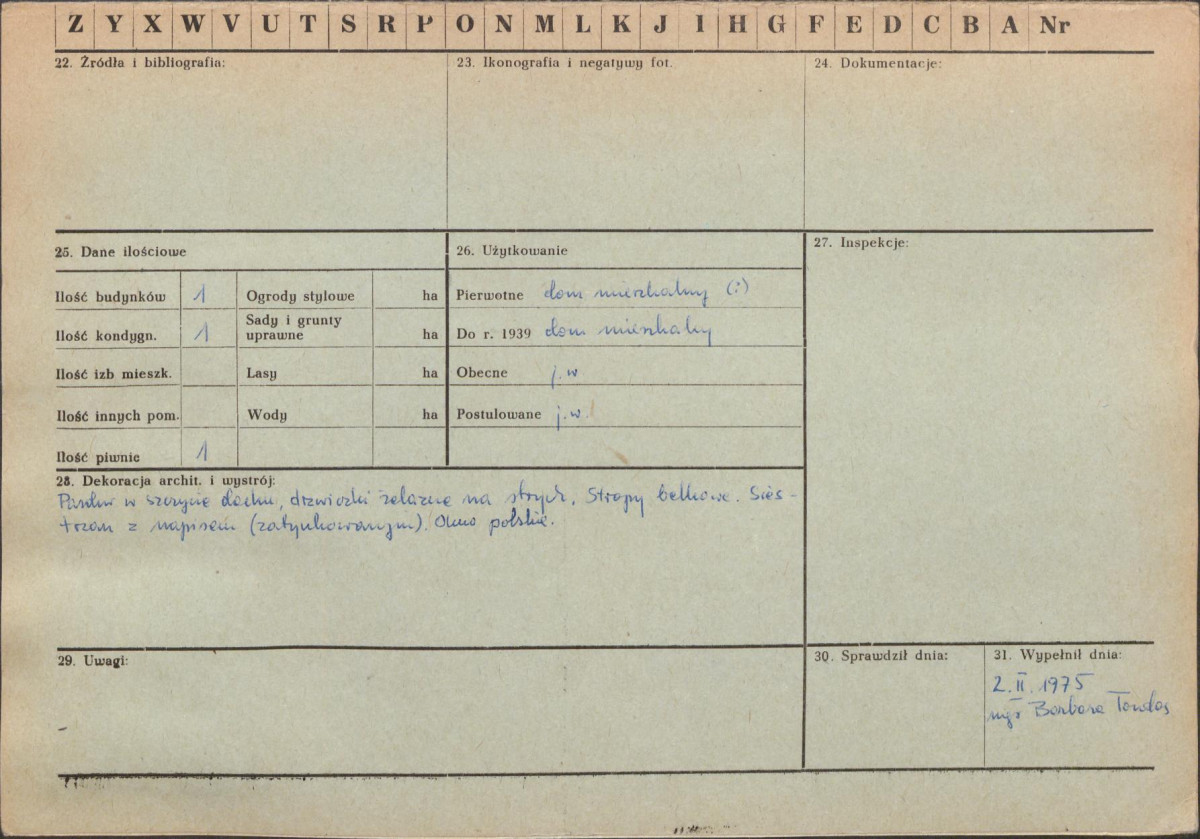 Z Y X W V U T S R P O N M L K J I H G F E D C B A Nr
22. Źródła i bibliografia:
23. Ikonografia i negatywy fot.
24. Dokumentacje:
25. Dane ilościowe
Ilość budynków 1 Ogrody stylowe ha
Ilość kondygn. 1 Sady i grunty uprawne ha
Ilość izb mieszk. Lasy ha
Ilość innych pom. Wody ha
Ilość piwnic 1
26. Użytkowanie
Pierwotne dom mieszkalny (:)
Do r. 1939 dom mieszkalny
Obecne j.w
Postulowane j.w.
27. Inspekcje:
28. Dekoracja archit. i wystrój:
w szczycie dachu, drzwiczki żelazne na strych. Stropy belkowe. Sies-
trzan z napisem (zatynkowanym). Okno polskie.
29. Uwagi:
30. Sprawdził dnia:
31. Wypełnił dnia:
2.II.1975
mgr Barbara Tondos